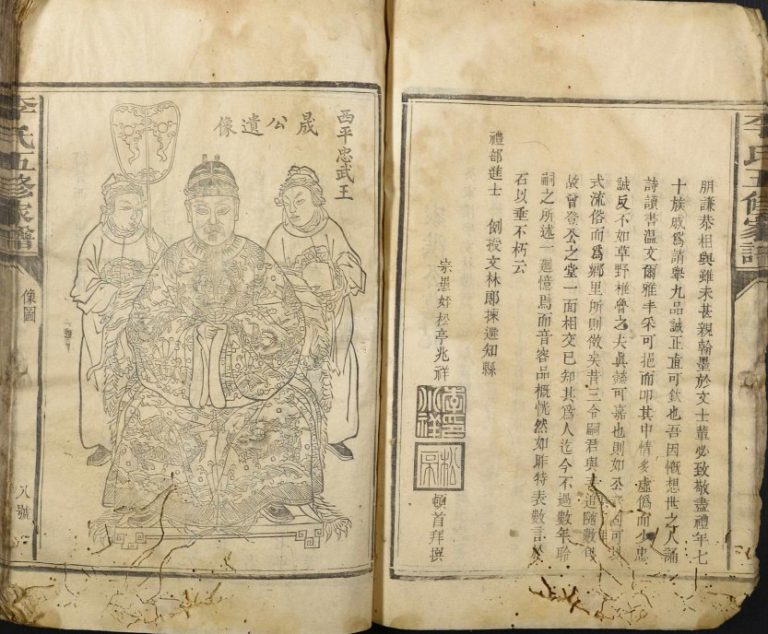 李氏五修家譜
朋謙恭相與雖未甚親翰墨於文士輩必致敬盡禮年七
十族戚爲請舉九品誠正直可欽也吾因慨想世之人誦
詩讀書溫文爾雅丰采可挹而叩其中情多虛僞而少忠
誠反不如草野椎魯之夫真懿可嘉也則如公者固可
式流俗而爲鄉里所則傚矣昔三令嗣君與予追隨數
故曾登公之堂一面相交已知其爲人迄今不過數年聆
嗣之所述一迴憶焉而音容品概恍然如昨特表數言於
石以垂不朽云
禮部進士 例授文林郎揀選知縣
宗愚姪松亭兆祥 頓首拜撰
西平忠武王
晟公遺像
李氏五修家譜
像圖
八號